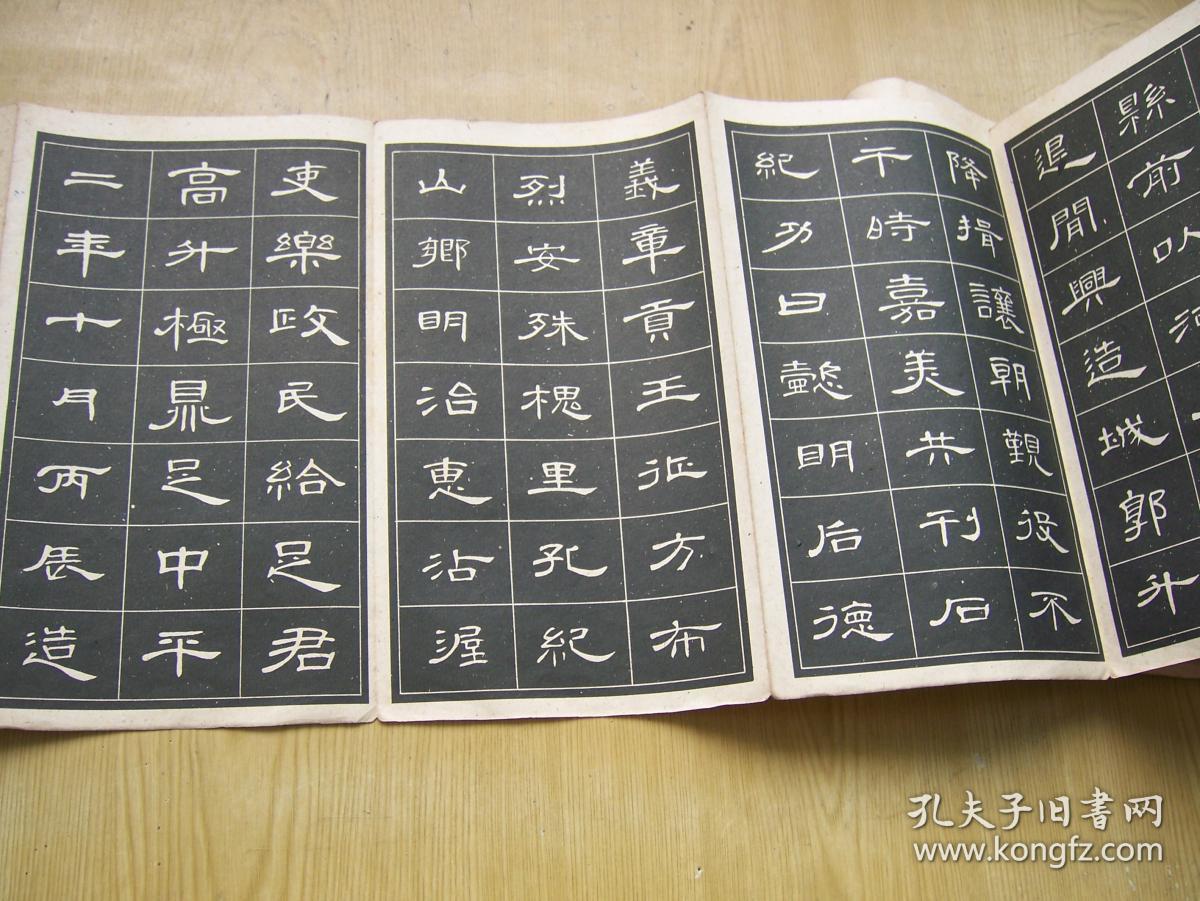 縣前以
退閒興造城郭升
降揖讓朝覲役不
干時嘉美共刊石
紀功曰懿明后德
義章貢王征方布
烈安殊槐里孔紀
山鄉明治惠沾渥
吏樂政民給足君
高升極鼎足中平
二年十月丙辰造
孔夫子旧书网
www.kongfz.com